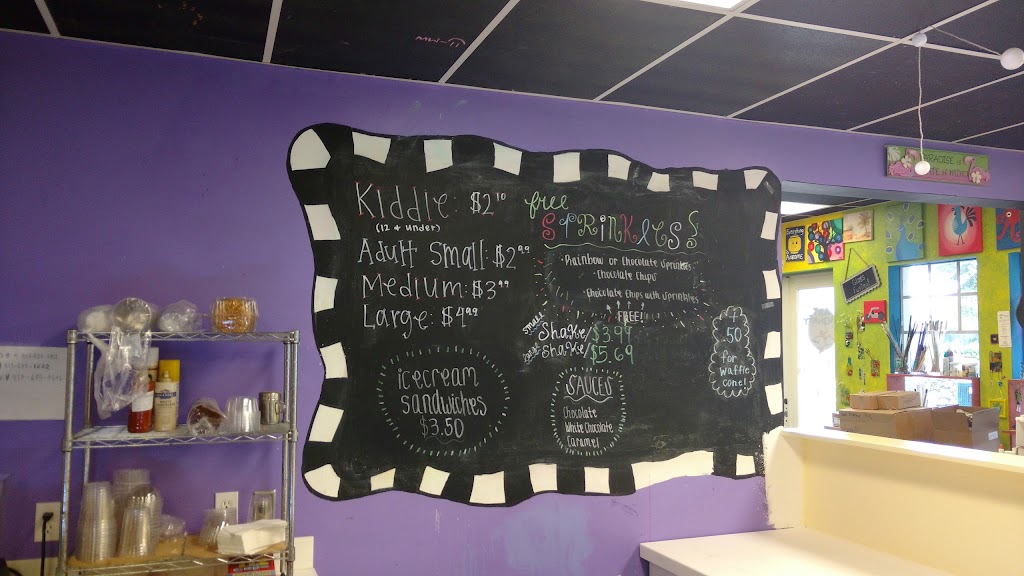 Kiddie: $2¹⁰
(12 & under)
Adult Small: $2⁹⁹
Medium: $3⁹⁹
Large: $4⁹⁹
icecream
sandwiches
$3.50
free
SPRINKLES
Rainbow or Chocolate Sprinkles
Chocolate Chips
Chocolate Chips with Sprinkles
FREE!
Small Shake $3.99
Shake $5.69
SAUCES
Chocolate
White Chocolate
Caramel
.50
for
waffle
cone!
PARADISE